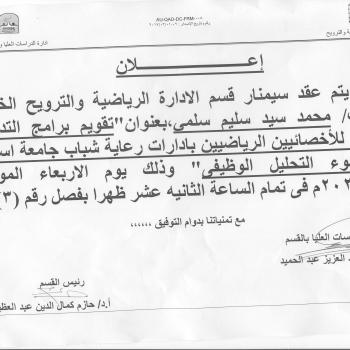 AU-QAD-DC-FRM-٠٠٥
ادارة الدراسات العليا و
ية والترويح
إعــــــلان
يتم عقد سيمنار قسم الادارة الرياضية والترويح الخ
/ محمد سيد سليم سلمي،بعنوان"تقويم برامج التد
للأخصائيين الرياضيين بادارات رعاية شباب جامعة اس
وء التحليل الوظيفي" وذلك يوم الاربعاء المو
٢٠م فى تمام الساعة الثانيه عشر ظهرا بفصل رقم (٣)
مع تمنياتنا بدوام التوفيق ،،،،،،
سات العليا بالقسم
د العزيز عبد الحميد
رئيس القسم
أ.د/ حازم كمال الدين عبد العظ